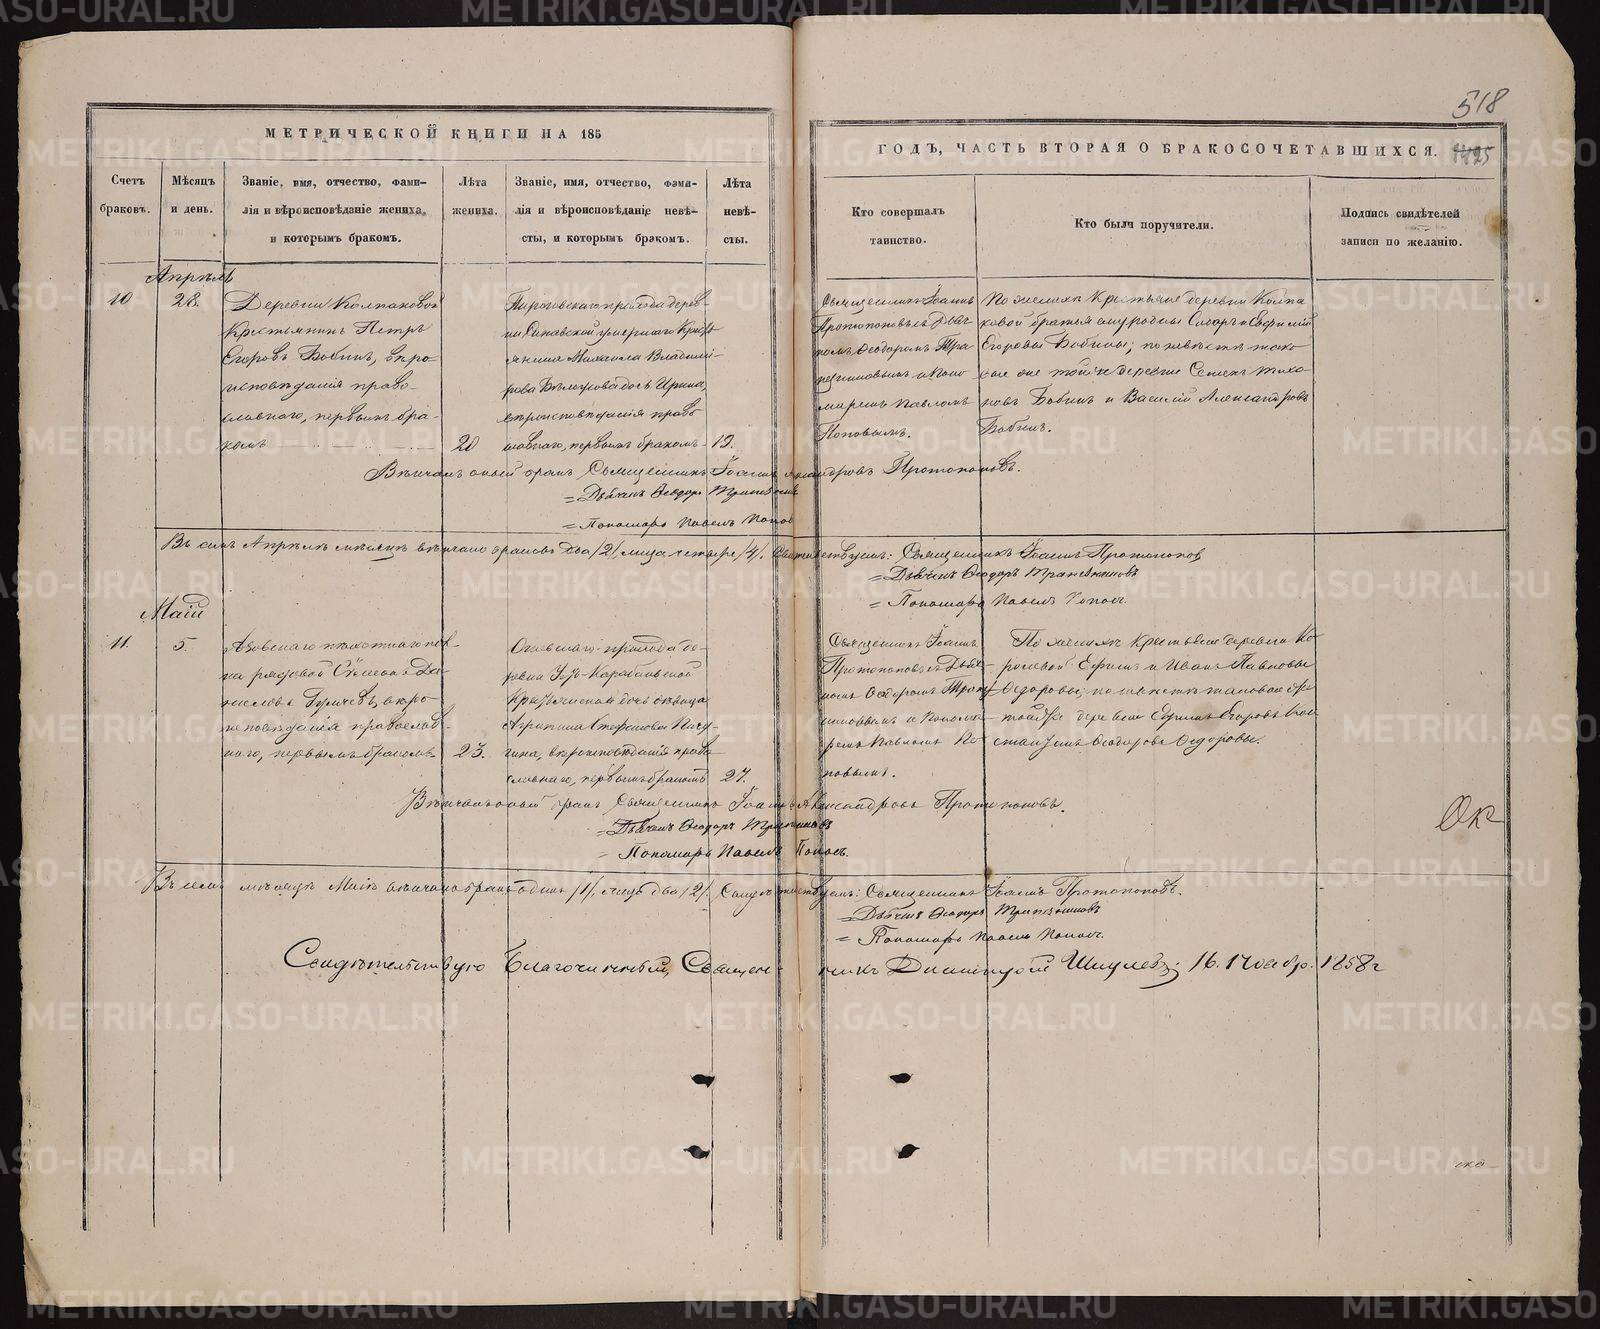 518
МЕТРИЧЕСКОЙ КНИГИ НА 185
ГОДЪ, ЧАСТЬ ВТОРАЯ О БРАКОСОЧЕТАВШИХСЯ.
1425
Счетъ
браковъ.
Мѣсяцъ
и день.
Званіе, имя, отчество, фами-
лія и вѣроисповѣданіе жениха,
и которымъ бракомъ.
Лѣта
жениха.
Званіе, имя, отчество, фами-
лія и вѣроисповѣданіе невѣ-
сты, и которымъ бракомъ.
Лѣта
невѣ-
сты.
Кто совершалъ
таинство.
Кто были поручители.
Подпись свидѣтелей
записи по желанію.
Апрѣль
10
28.
Деревни Колпаковой
Крестьянинъ Петръ
Егоровъ Бобинъ, вѣро
исповѣданія право-
славнаго, первымъ бра-
комъ
20
прихода дерев-
ни умершаго Кресть
янина Михаила Владими-
рова дочь Ирина,
вѣроисповѣданія право
славнаго, первымъ бракомъ
19.
Священникъ Іоаннъ
Протопоповъ съ Дьяч
комъ Ѳеодоромъ Тра
пезниковымъ и Поно
маремъ Павломъ
Поповымъ.
По женихѣ Крестьяне деревни Колпа
ковой братья ему родные и
Егоровы Бобины; по невѣстѣ тако
вые же той же деревни Семенъ Тихо
новъ Бобинъ и Василій Александровъ
Бобинъ.
Вѣнчалъ оный бракъ Священникъ Іоаннъ Александровъ Протопоповъ.
= Дьячекъ Ѳеодоръ Трапезниковъ
= Пономарь Павелъ Попов
Въ семъ Апрѣлѣ мѣсяцѣ вѣнчано браковъ два /2/ лица четыре /4/. Свидѣтельствуемъ: Священникъ Іоаннъ Протопопов
= Дьячекъ Ѳеодоръ Трапезниковъ
= Пономарь Павелъ Попосъ.
Май
11.
5.
Азовскаго пѣхотнаго пол-
ка рядовой Да-
ниловъ вѣро
исповѣданія православ-
наго, первымъ бракомъ
23.
прихода де-
ревни Усть-Карабольской
Крестьянская дочь дѣвица
Агрипина Стефанова
вѣроисповѣданія право
славнаго, первымъ бракомъ
27.
Священникъ Іоаннъ
Протопоповъ съ Дьяч-
комъ Ѳеодоромъ Трапез
никовымъ и Понома-
ремъ Павломъ По-
повымъ.
По женихѣ Крестьяне деревни Ко-
ролевой Ефимъ и Иванъ Павловы
Ѳедоровы; по невѣстѣ таковые же
той же деревни Ефимъ Егоровъ и
Ѳеодоровъ Ѳедоровы.
Вѣнчалъ оный бракъ Священникъ Іоаннъ Александровъ Протопоповъ.
= Дьячекъ Ѳеодоръ Трапезниковъ
= Пономарь Павелъ Попосъ.
Ок
Въ семъ мѣсяцѣ Маѣ вѣнчано бракъ одинъ /1/, лицъ два /2/. Свидѣтельствуемъ: Священникъ Іоаннъ Протопоповъ.
= Дьячекъ Ѳеодоръ Трапезниковъ
= Пономарь Павелъ Попосъ.
Свидѣтельствую Благочинный, Священникъ 16. 1858 г
METRIKI.GASO-URAL.RU